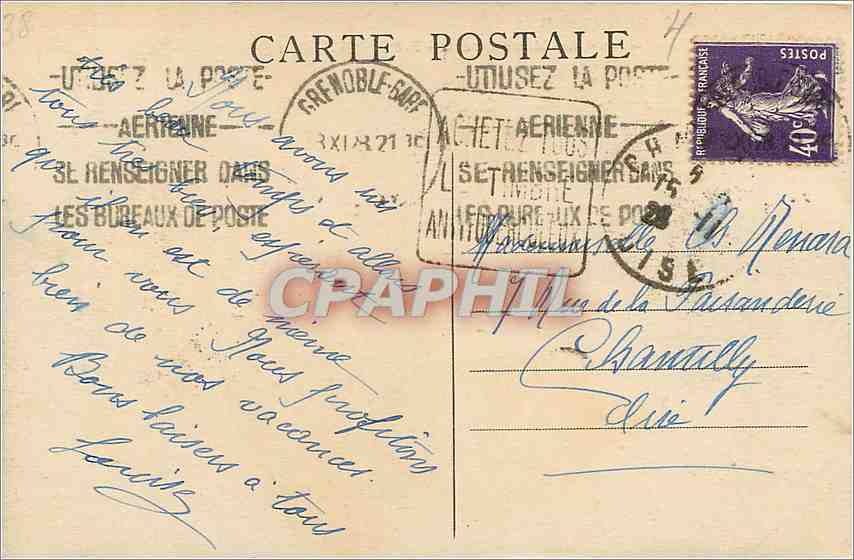 28
4
CARTE POSTALE
-UTILISEZ LA POSTE-
-AERIENNE-
SE RENSEIGNER DANS
LES BUREAUX DE POSTE
GRENOBLE-GARE
21 30
-UTILISEZ LA POSTE-
AERIENNE
SE RENSEIGNER DANS
LES BUREAUX DE POSTE
ACHETEZ TOUS
LE TIMBRE
REPUBLIQUE FRANÇAISE
POSTES
40c
28
Nous avons un
très beau temps et allons
tous très bien, espérons
qu'il en est de même
pour vous. Nous profitons
bien de nos vacances.
Bons baisers à tous
Mademoiselle Ch. Renard
7 Rue de la Faisanderie
Chantilly
Oise
CPAPHIL